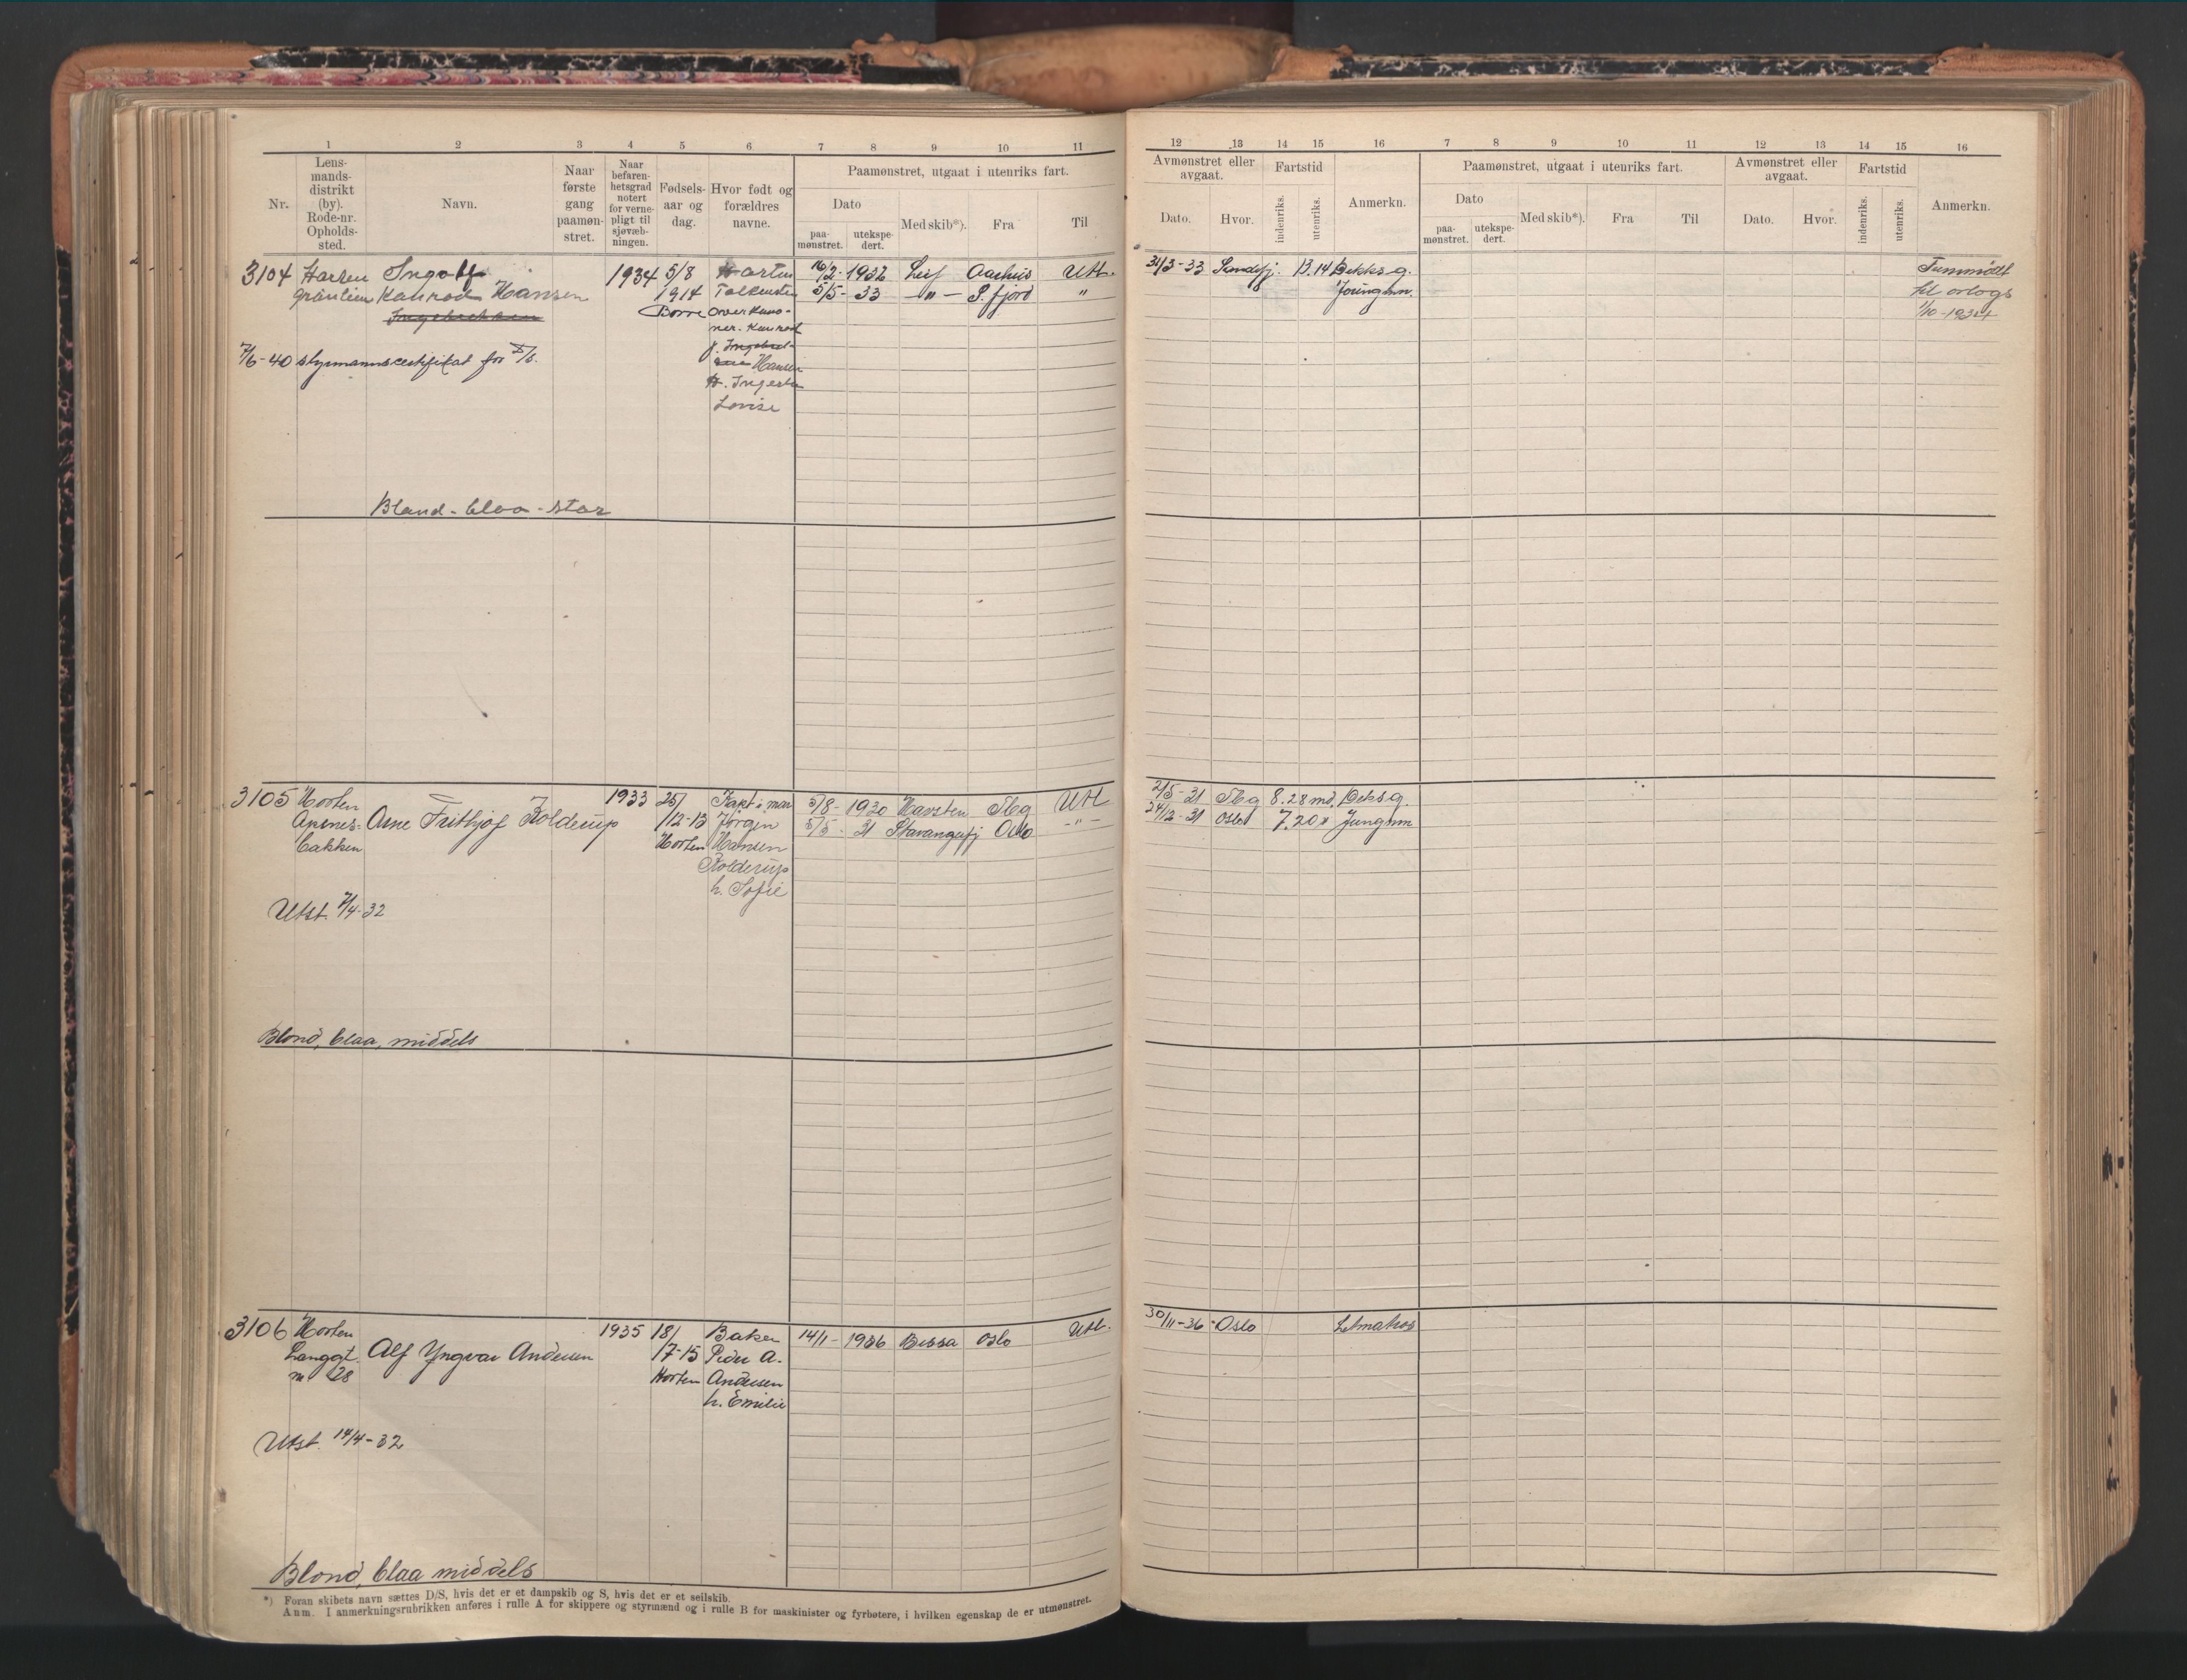 1 2 3 4 5 6 7 8 9 10 11
Nr.
Lens-
mands-
distrikt
(by).
Rode-nr.
Opholds-
sted.
Navn.
Naar
første
gang
paamøn-
stret.
Naar
befaren-
hetsgrad
notert
for verne-
pligt til
sjøvæb-
ningen.
Fødsels-
aar og
dag.
Hvor født og
forældres
navne.
Paamønstret, utgaat i utenriks fart.
Dato
paa-
mønstret.
utekspe-
dert.
Med skib*).
Fra
Til
3104 Horten Ingolf 1934 5/8 Horten 16/2-1932 Leif Aarhus Utl.
Kanrad Hansen 1914 5/5-33 -"- S. fjord "
Borre
ner. Kanrad
Hansen
Lovise
7/6-40 styrmannscertifikat for
Bland-blaa-stor
3105 Horten Arne Frithjof Kolderup 1933 25/ 5/8-1930 Karsten Tbg Utl
Apenes- /12-13 Jørgen 5/5-31 Stavangerfj Oslo -"-
bakken Horten Hansen
Kolderup
h. Sofie
Utst. 7/4-32
Blond, blaa, middels
3106 Horten Alf Yngvar Andersen 1935 18/ Baker 14/11-1936 Bessa Oslo Utl.
Langgt. /7-15 Peder A.
nr 28 Horten Andersen
h. Emilie
Utst. 14/4-32
Blond, blaa middels
*) Foran skibets navn sættes D/S, hvis det er et dampskib og S, hvis det er et seilskib.
Anm. I anmerkningsrubrikken anføres i rulle A for skippere og styrmænd og i rulle B for maskinister og fyrbøtere, i hvilken egenskap de er utmønstret.
12 13 14 15 16 7 8 9 10 11 12 13 14 15 16
Avmønstret eller
avgaat.
Dato.
Hvor.
Fartstid
indenriks.
utenriks.
Anmerkn.
Paamønstret, utgaat i utenriks fart.
Dato
paa-
mønstret.
utekspe-
dert.
Med skib*).
Fra
Til
Avmønstret eller
avgaat.
Dato.
Hvor.
Fartstid
indenriks.
utenriks.
Anmerkn.
31/3-33 Sandefj. 13.14 Dekksg.
Jungmn.
til orlogs
1/10-1934
2/5-31 Tbg 8.28 md. Deksg.
24/12-31 Oslo 7.20 " Jungmn
30/11-36 Oslo Letmatros